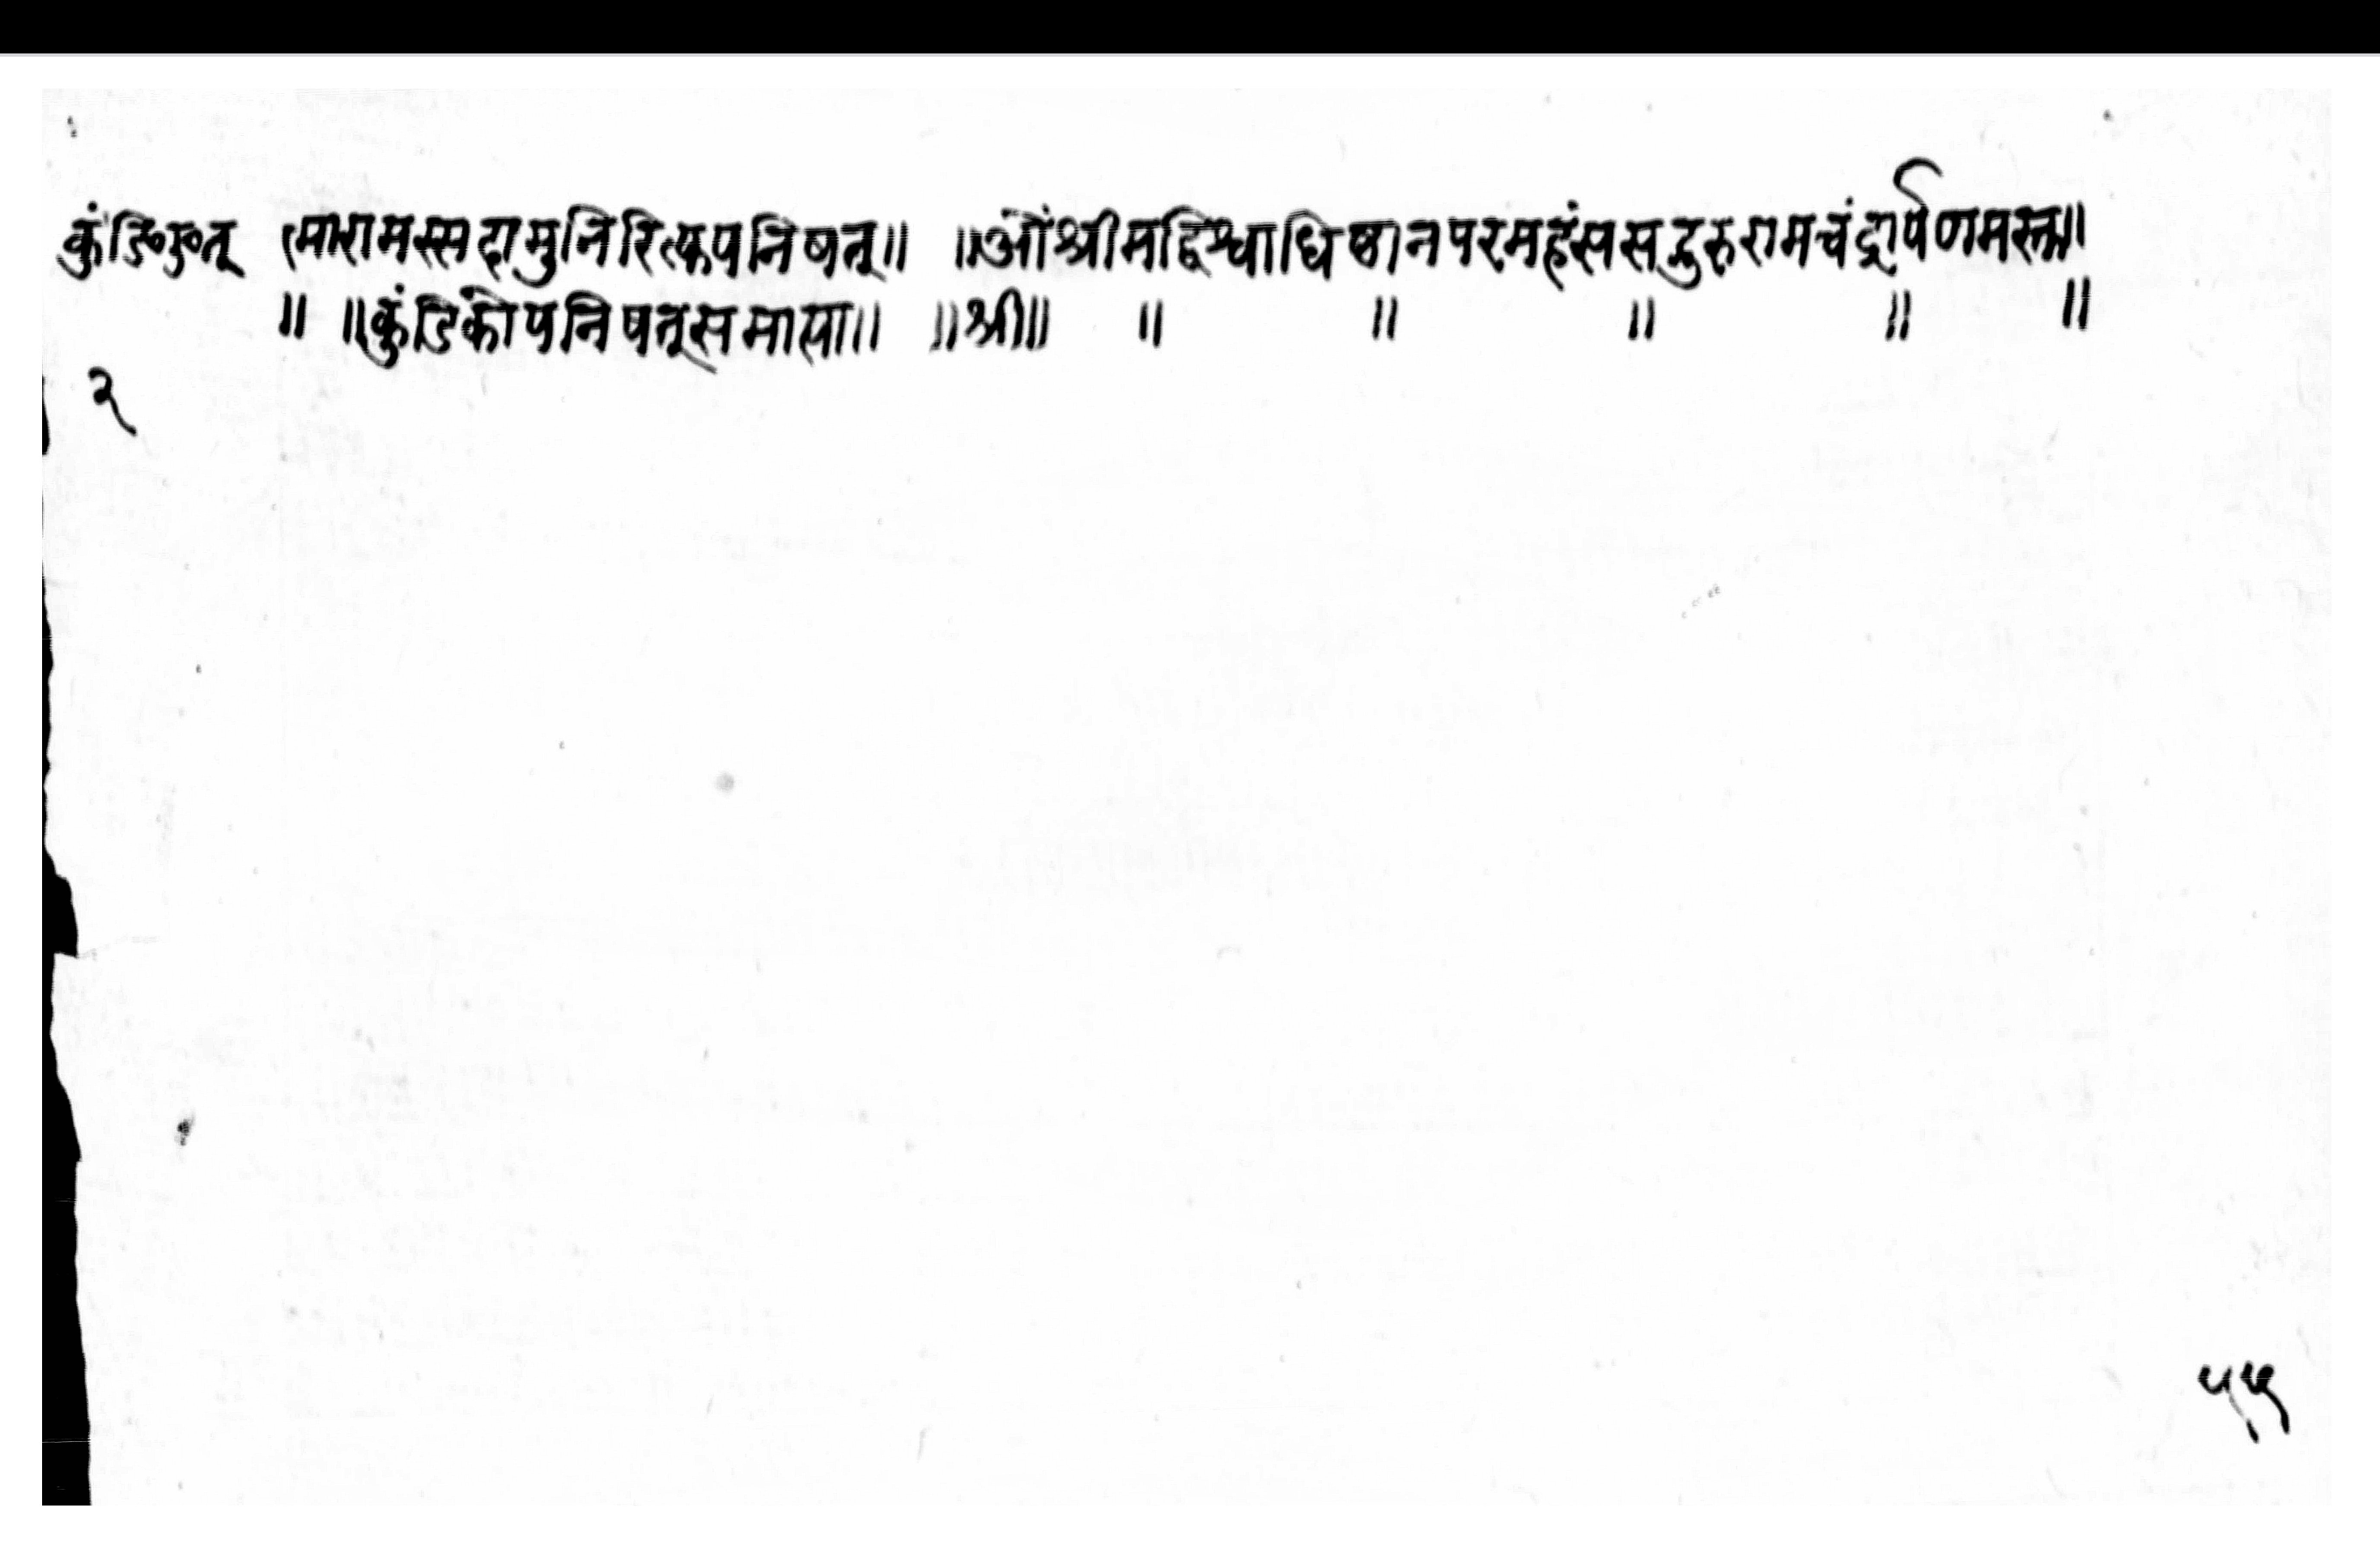 कुंडि॰ऊ॰त् त्मारामस्सदामुनिरित्युपनिषत्॥ ॥ओंश्रीमद्विश्वाधिष्ठानपरमहंससद्गुरुरामचंद्रार्पणमस्तु॥
॥ ॥कुंडिकोपनिषत्समाप्ता॥ ॥श्री॥ ॥ ॥ ॥ ॥ ॥
२
५५